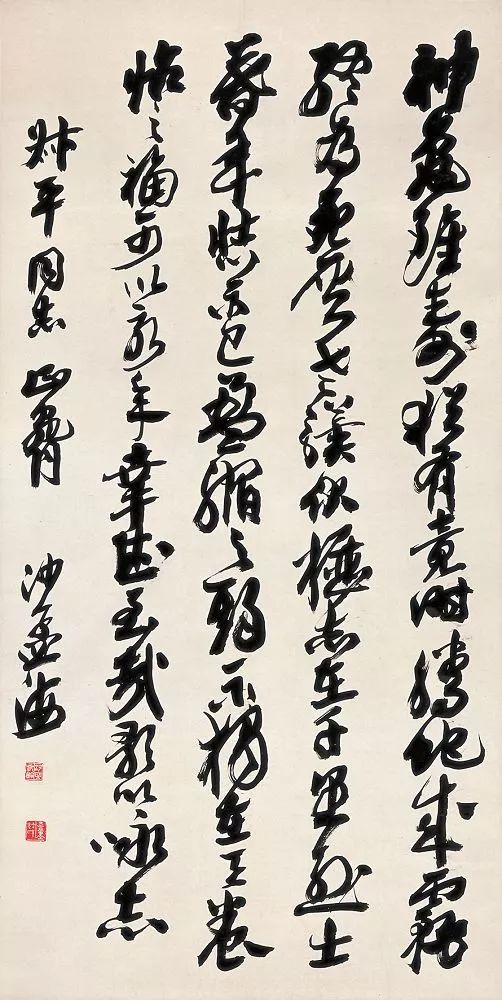 神龜雖壽猶有竟時騰蛇成霧
終為死灰老驥伏櫪志在千里烈士
暮年壯心不已盈縮之期不獨在天養
怡之福可以永年幸甚至哉歌以詠志
平同志正 沙孟海